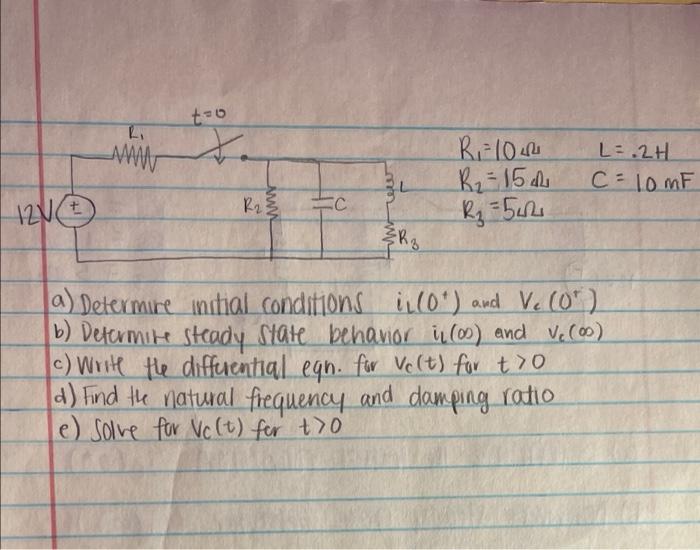 t=0
R₁
R₁=10Ω L=.2H
R₂=15Ω C=10mF
R₃=5Ω
12V ± R₂ C L
R₃
a) Determine initial conditions iL(0⁺) and Vc(0⁺)
b) Determine steady state behavior iL(∞) and Vc(∞)
c) Write the differential eqn. for Vc(t) for t>0
d) Find the natural frequency and damping ratio
e) Solve for Vc(t) for t>0